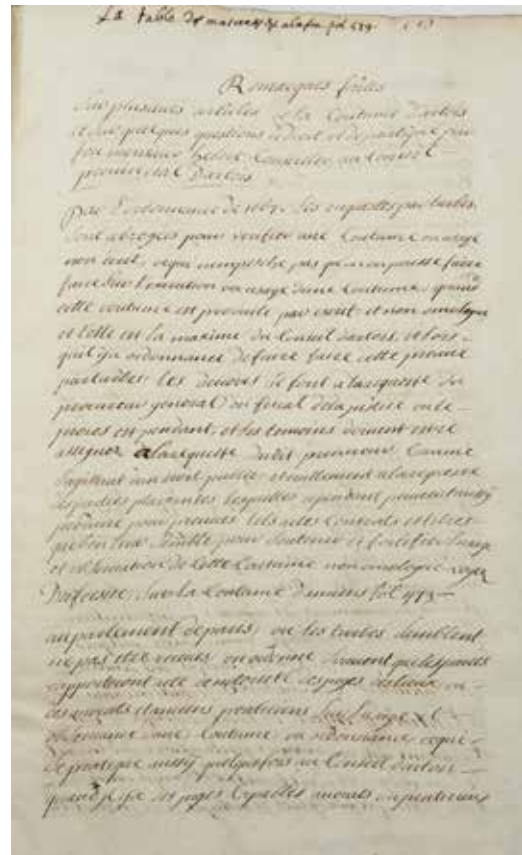 La table des matieres est a la fin fol 499
Remarques faites
Sur plusieurs articles de la Coutume d'artois
et sur quelques questions de droit et de pratique par
feu monsieur hebert Conseiller au Conseil
provincial d'artois
Par l'ordonnance de 1667 les enquestes par turbes
sont abrogées pour verifier une Coutume ou usage
non écrit, ce qui n'empesche pas qu'on ne puisse faire
sur l'execution ou usage d'une Coutume, quand
cette coutume est par écrit et non omologuée
et telle est la maxime du Conseil d'artois, et lors
qu'il y a ordonnance de faire faire cette preuve
particuliere les se font a la requeste du
procureur general ou fiscal de la justice ou le
proces est pendant, et les temoins doivent estre
assignez a la requeste dudit procureur Comme
s'agissant d'un droit public et nullement a la requeste
des parties plaidantes lesquelles cependant peuvent aussy
produire pour preuves tels actes Contrats et titres
que bon leur semble pour soutenir et fortifier l'usage
et observation de cette Coutume non omologuée voyez
Dufresne, sur la Coutume d'amiens fol 473
au parlement de paris, ou les turbes semblent
n'estre pas on ordonne souvent que les parties
rapporteront acte de notorieté des juges des lieux
des avocats et anciens praticiens sur l'usage et
observance d'une Coutume ou ordonnance ce qui
se pratique aussy quelquefois au Conseil d'artois
des juges lesquelles avocats ou praticiens